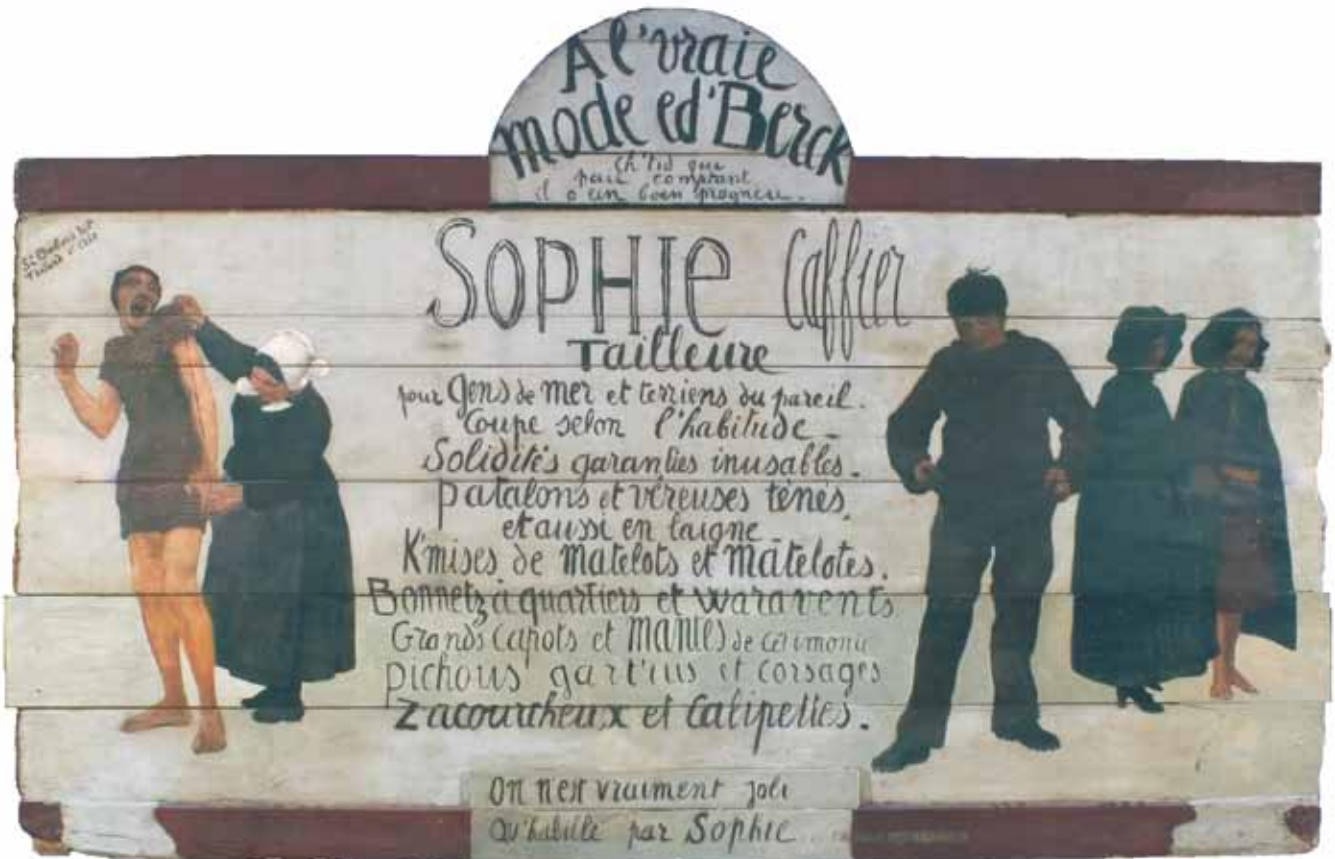 A l'vraie
mode ed'Berck
Ch'tid que
paie comptant
il o un boen progneu.
SOPHIE Caffier
Tailleure
pour Gens de mer et terriens du pareil.
Coupe selon l'habitude -
Solidités garanties inusables.
patalons et véreuses ténés
et aussi en laigne
K'mises de Matelots et Matelotes.
Bonnetz à quartiers et waravents
Grands capots et MANTES de cérimonie
pichous gart'rus et corsages
Zacourcheux et Calipettes.
On n'est vraiment joli
Qu'habillé par Sophie